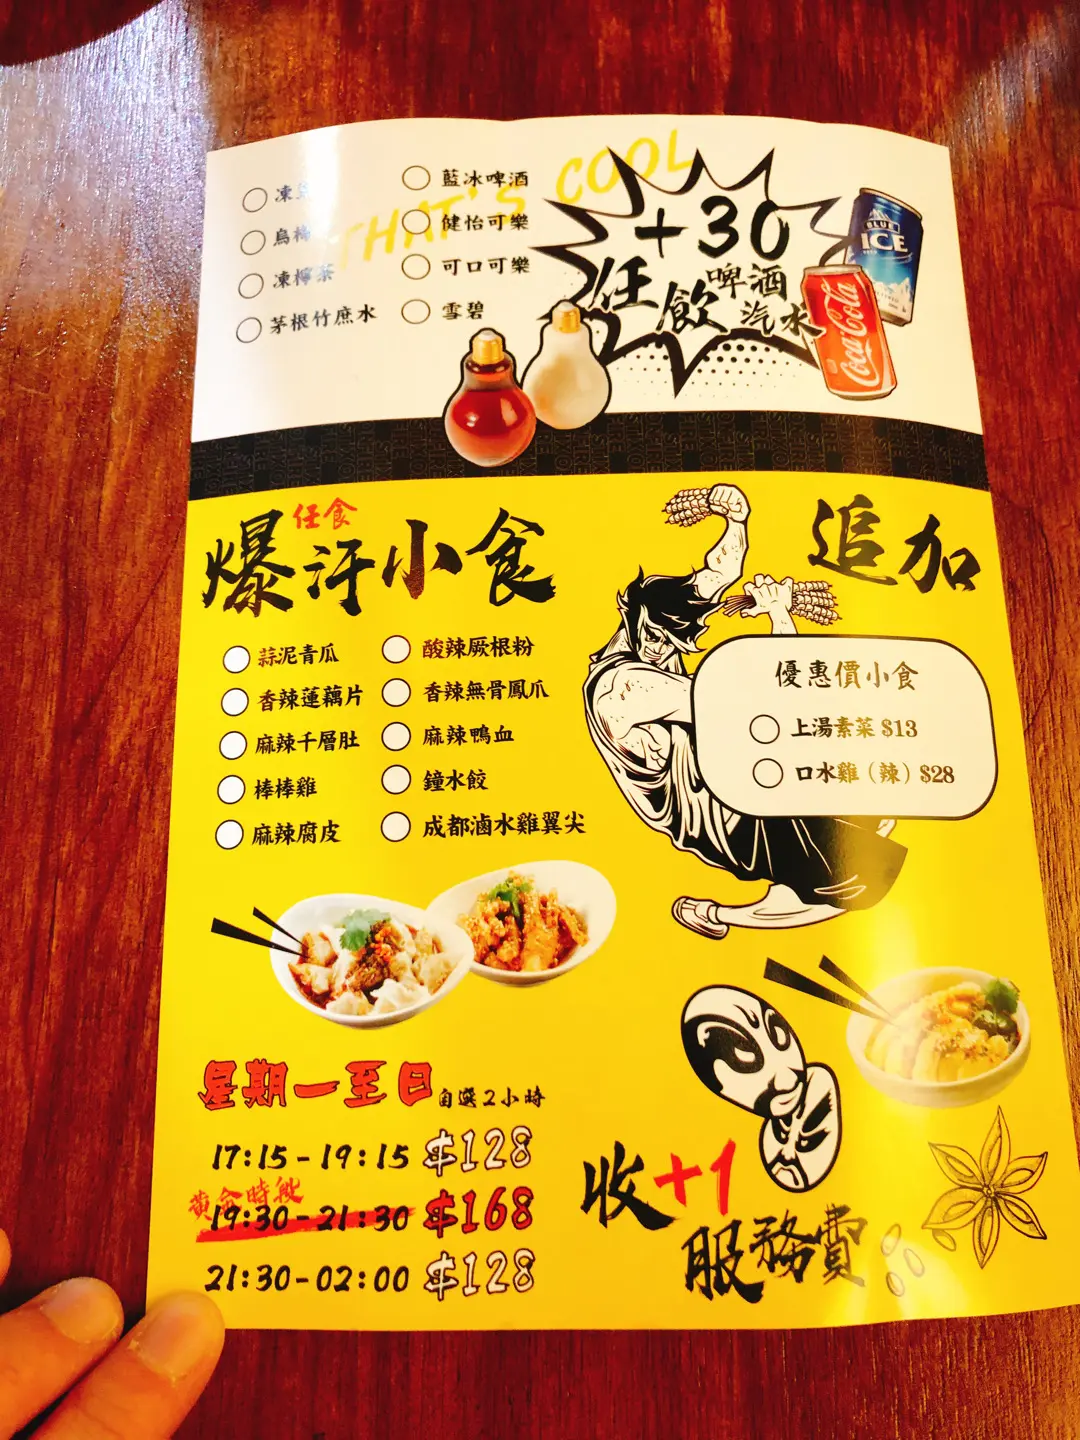 THAT'S COOL
烏梅
凍檸茶
茅根竹庶水
藍冰啤酒
健怡可樂
可口可樂
雪碧
+30
任飲
啤酒
汽水
BLUE
ICE
Coca-Cola
任食
爆汗小食
蒜泥青瓜
香辣蓮藕片
麻辣千層肚
棒棒雞
麻辣腐皮
酸辣厥根粉
香辣無骨鳳爪
麻辣鴨血
鐘水餃
成都滷水雞翼尖
追加
優惠價小食
上湯素菜 $13
口水雞（辣）$28
星期一至日 自選2小時
17:15-19:15 $128
黃金時段
19:30-21:30 $168
21:30-02:00 $128
收+1
服務費